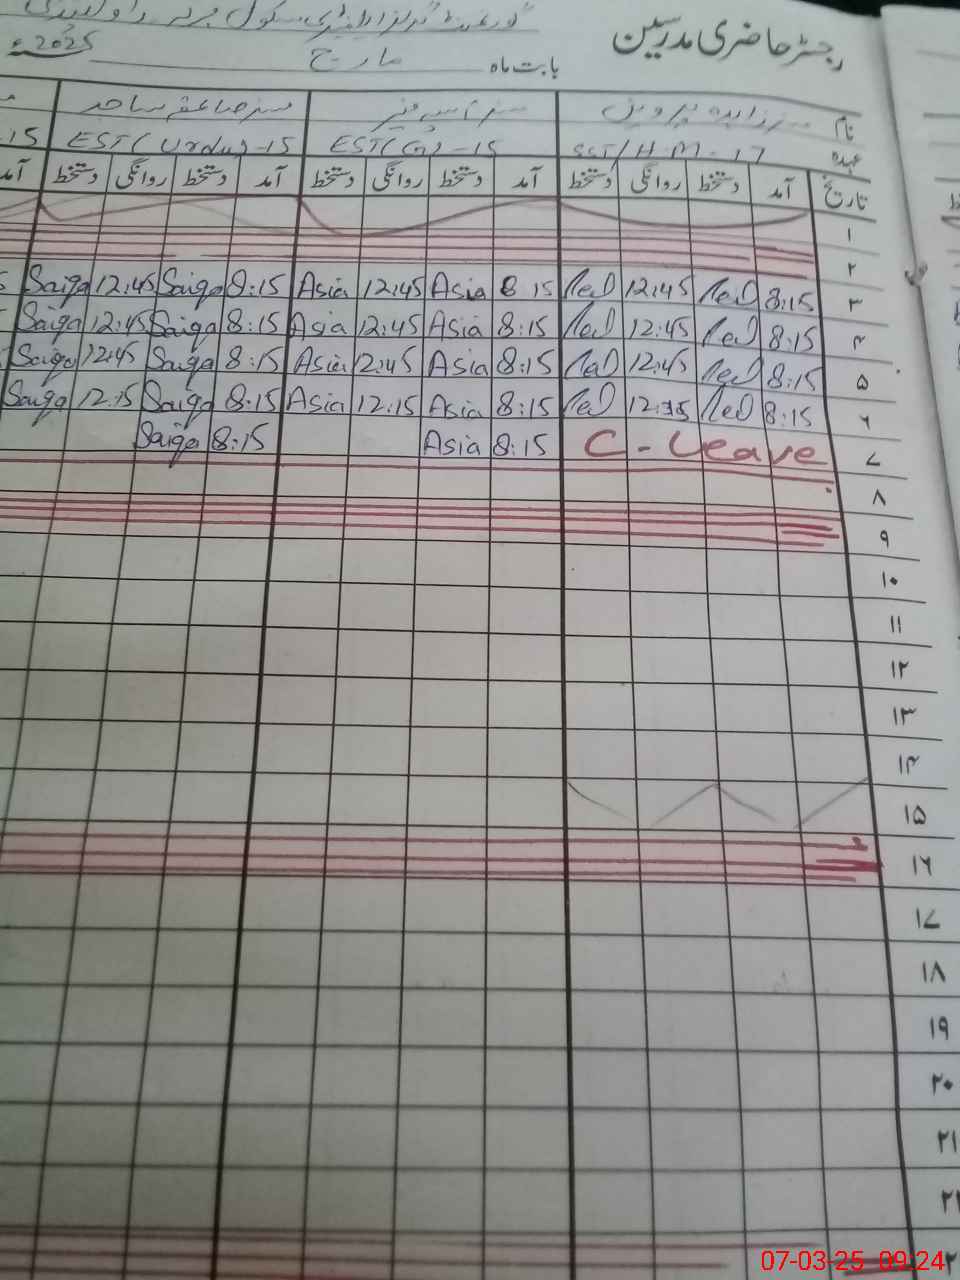 گورنمنٹ گرلز ایلیمنٹری سکول
رجسٹر حاضری مدرسین
بابت ماہ مارچ 2025ء
نام مسز زاہدہ پروین
عہدہ SST/H.M-17 EST(G)-15 EST(Urdu)-15 -15
تاریخ آمد دستخط روانگی دستخط آمد دستخط روانگی دستخط آمد دستخط روانگی دستخط آمد
۱
۲
۳ 8:15 12:45 8:15 Asia 12:45 Asia 8:15 Saiqa 12:45 Saiqa
۴ 8:15 12:45 8:15 Asia 12:45 Asia 8:15 Saiqa 12:45 Saiqa
۵ 8:15 12:45 8:15 Asia 12:45 Asia 8:15 Saiqa 12:45 Saiqa
۶ 8:15 8:15 Asia 12:15 Asia 8:15 Saiqa 12:15 Saiqa
۷ C-Leave 8:15 Asia 8:15 Saiqa
۸
۹
۱۰
۱۱
۱۲
۱۳
۱۴
۱۵
۱۶
۱۷
۱۸
۱۹
۲۰
۲۱
07-03-25 09:24